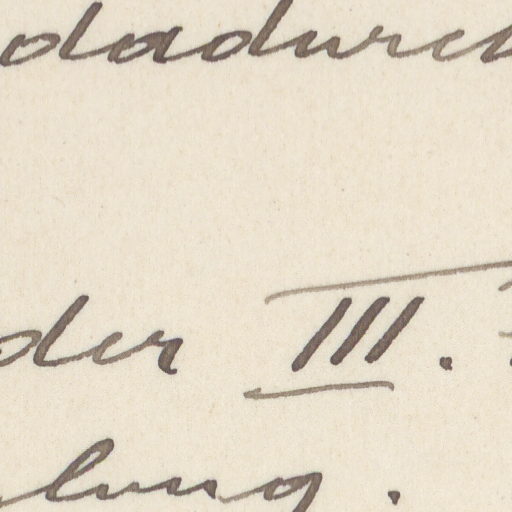 dadurch
der III.
lung.